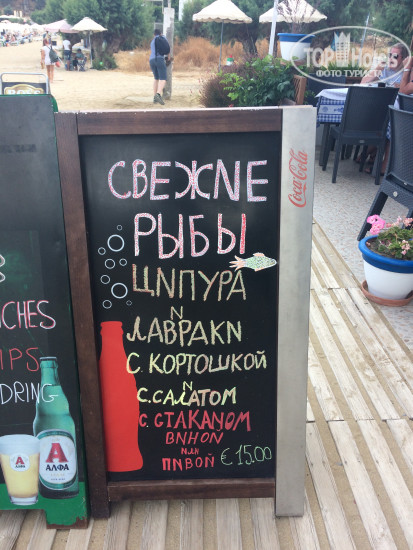 TopHotels
ФОТО ТУРИСТА
СВЕЖNЕ
РЫБЫ
ЦNПУРА
N
ЛАВРАКN
С. КОРТОШКОЙ
N
С.САЛАТОМ
С. СТАКАНОМ
ВNНОN
NЛN
ПNВОЙ €15.00
Coca-Cola
DRING
ΑΛΦΑ